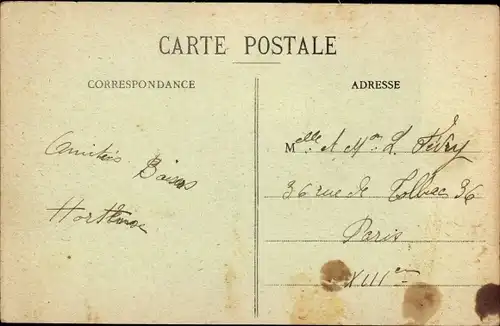 CARTE POSTALE
CORRESPONDANCE
ADRESSE
Amitiés Baisers
Hortense
Melle. A Mr. L. Févry
36 rue de Tolbiac 36
Paris
XIIIem